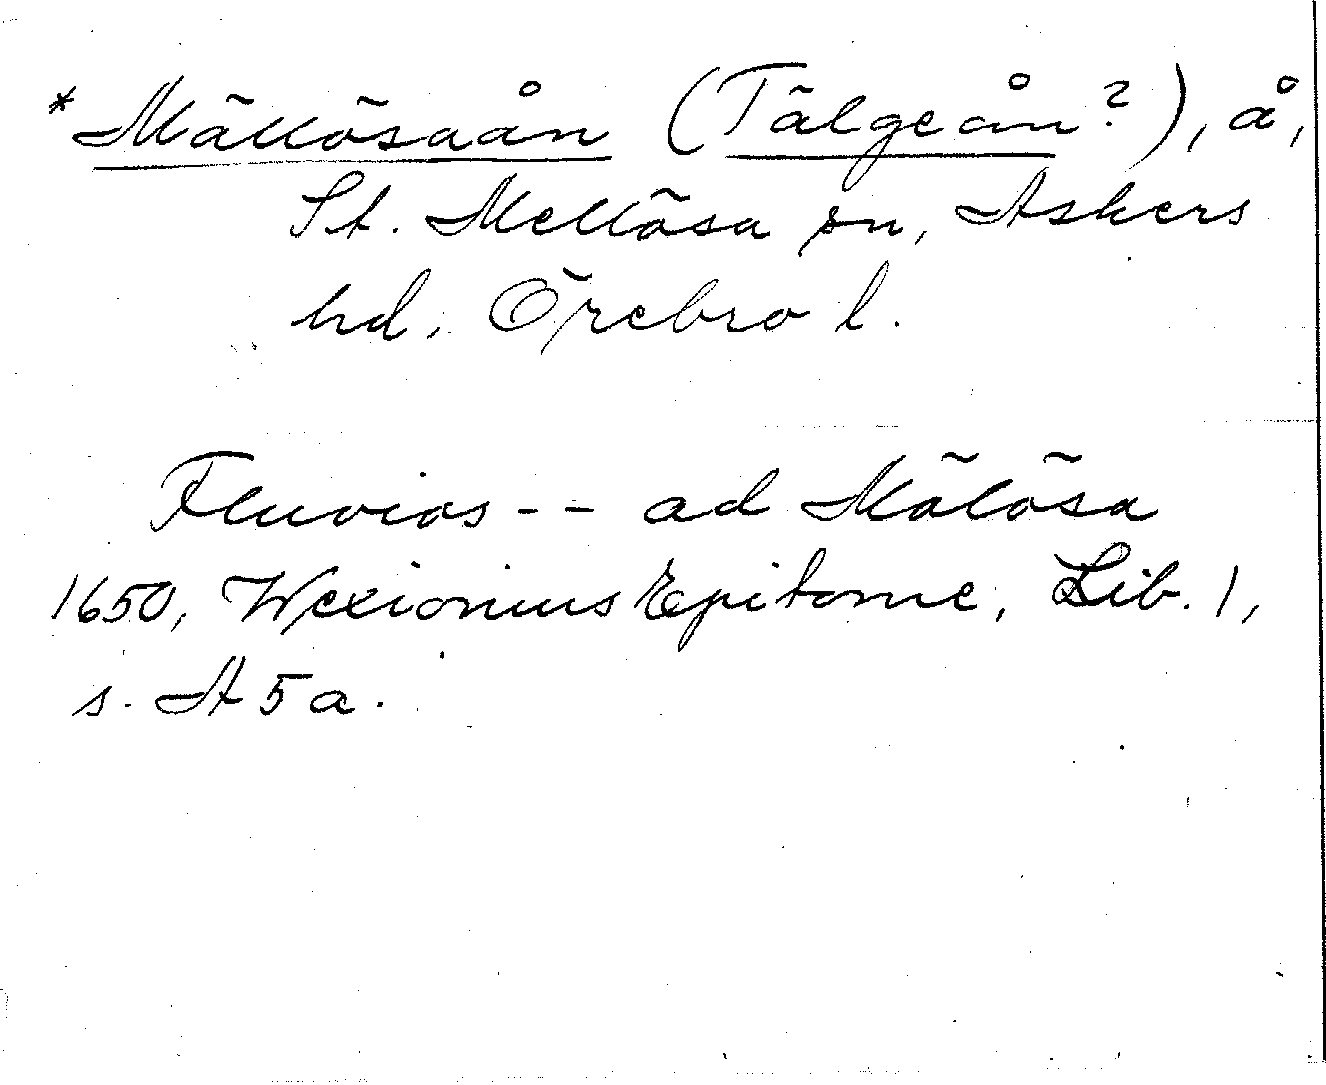 *Mällösaån (Tälgeån?), å,
St. Mellösa sn, Askers
hd, Örebro l.
Fluvios -- ad Mälösa
1650, Wexionius Epitome, Lib. 1,
s. A 5 a.